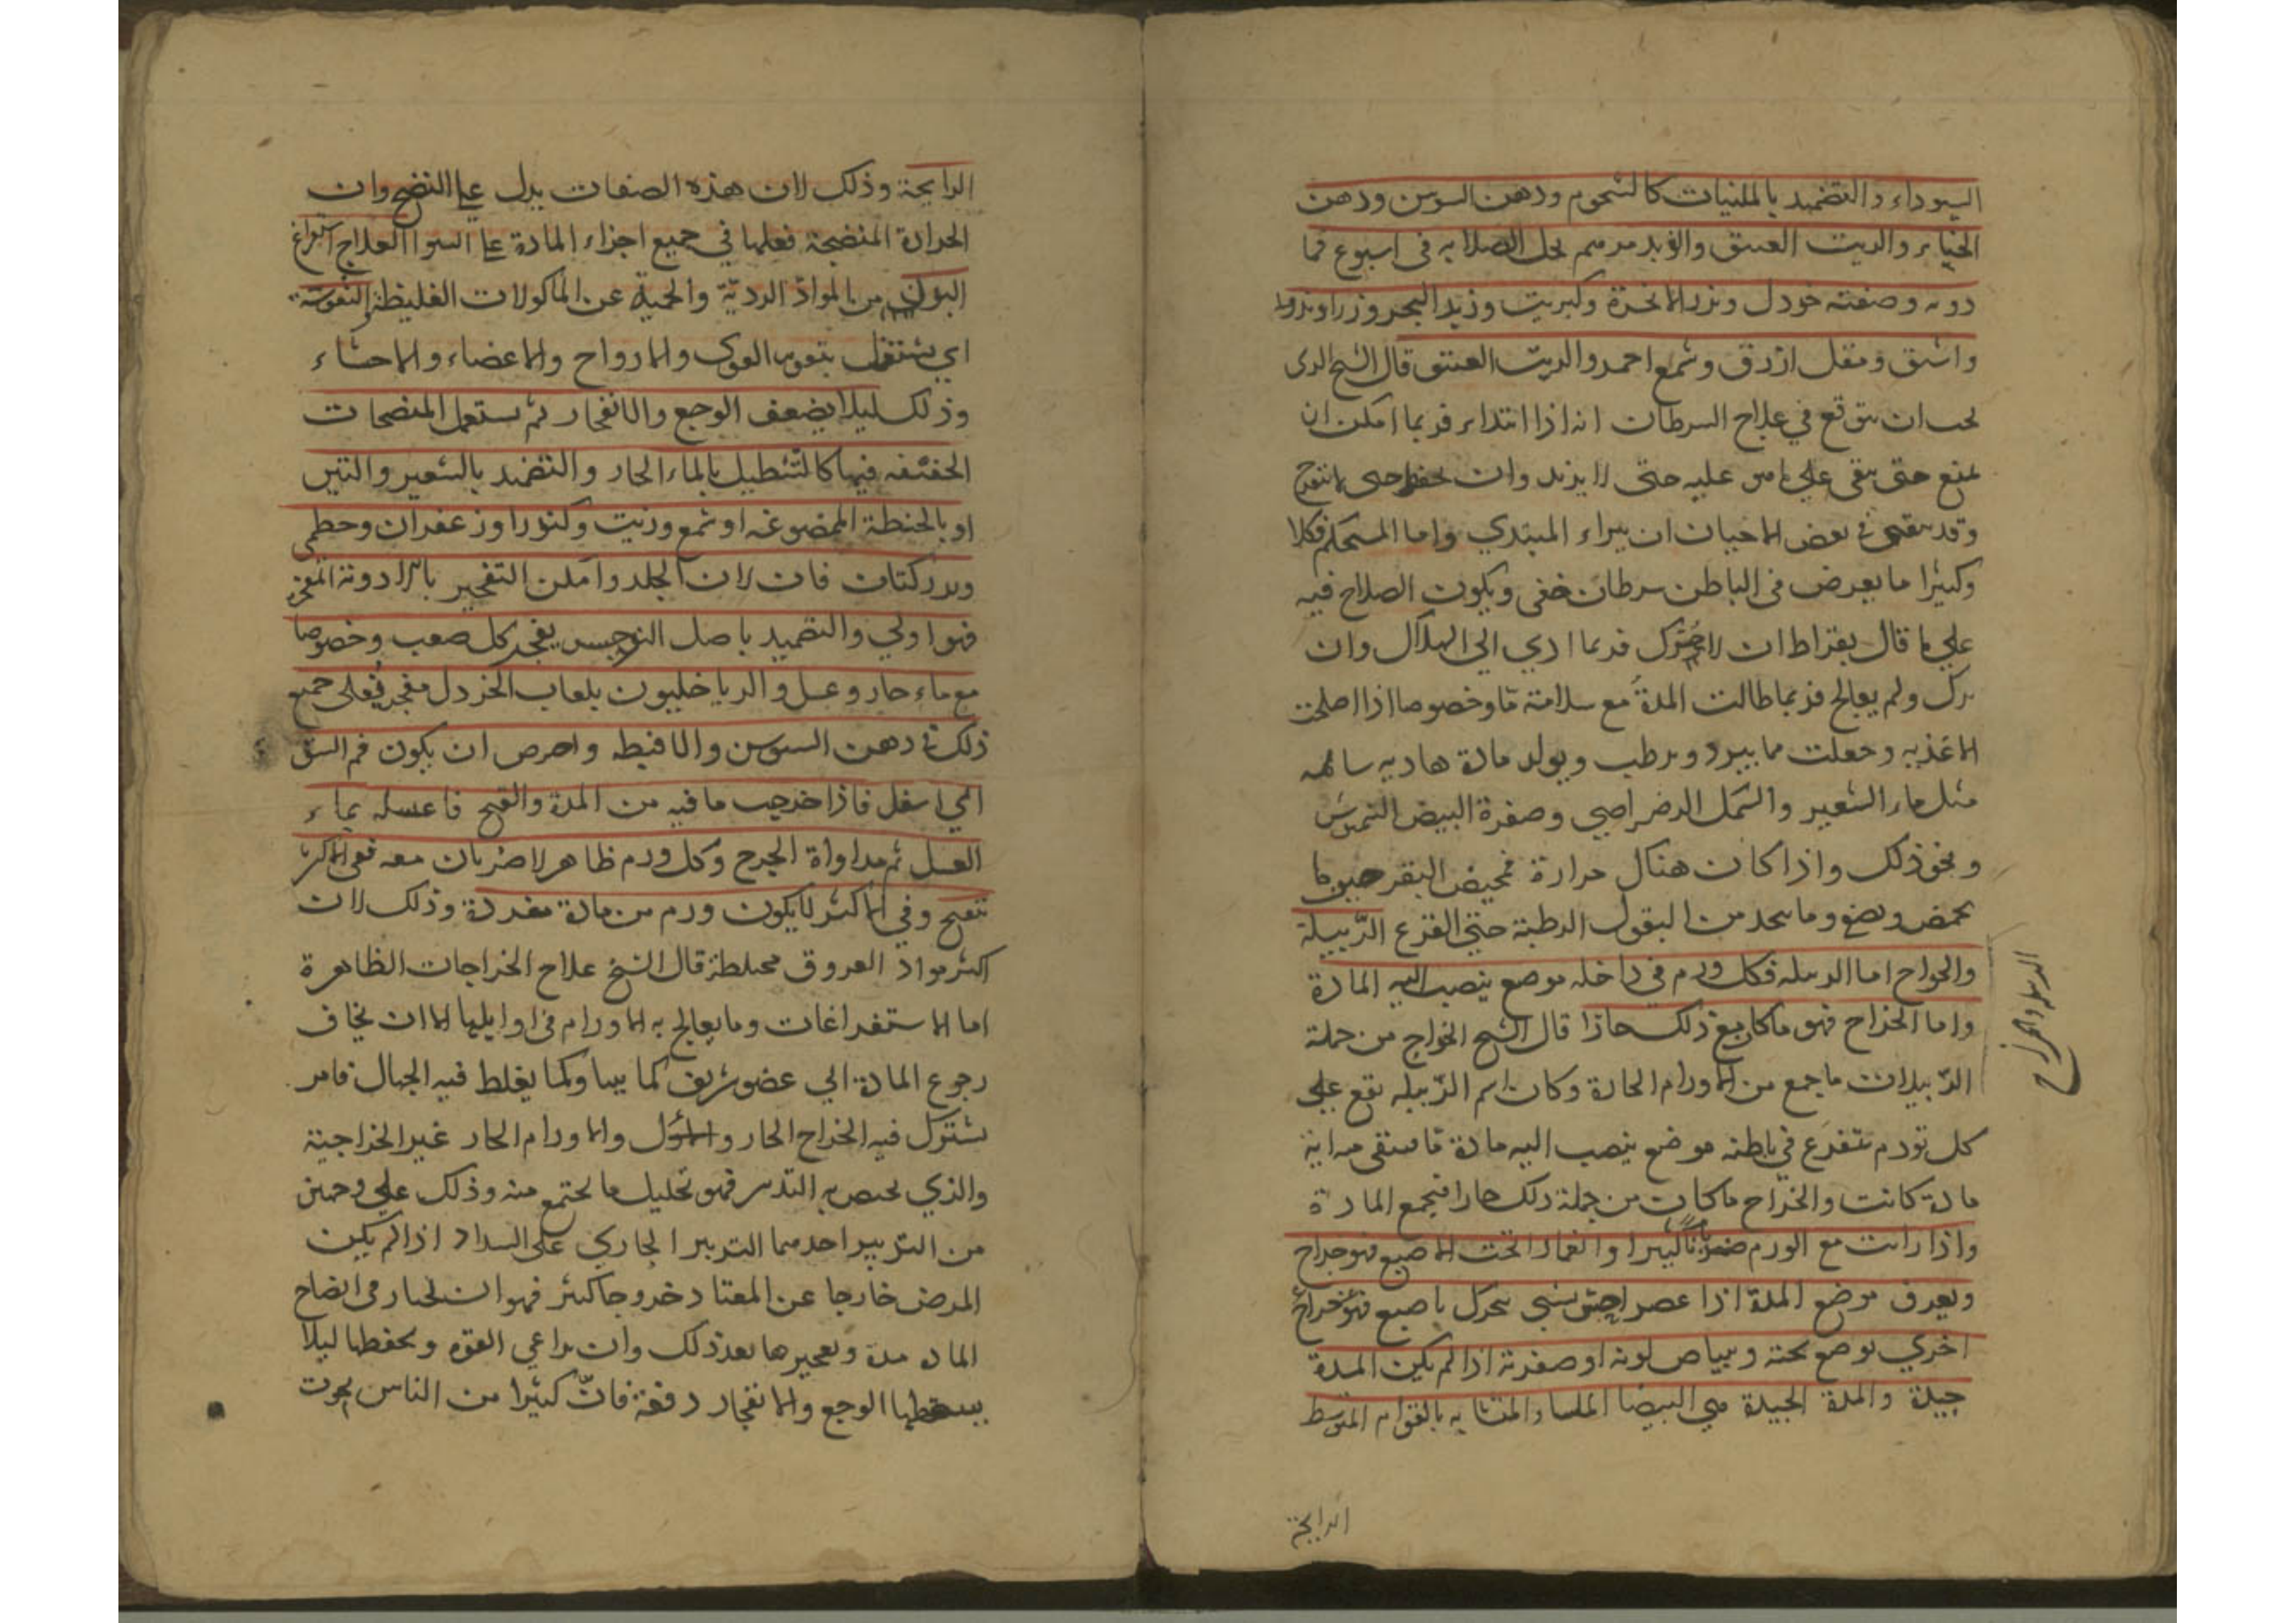 السوداء والتضميد بالملينات كالشحوم ودهن السوسن ودهن
الحناء والزيت العتيق والزبد مرهم يحل الصلابه فى اسبوع فما
دونه وصفته خردل وبزر الانجرة وكبريت وزبد البحر وزراوند
واشق ومقل ازرق وشمع احمر والزيت العتيق قال الشيخ الذى
يجب ان يتوقع في علاج السرطان انه اذا ابتداء فربما امكن ان
يمنع حتى يبقى على ما هو عليه حتى لا يزيد وان يحفظ حتى لا يتقرح
وقد يتفق فى بعض الاحيان ان يبراء المبتدي واما المستحكم فكلا
وكثيرا ما يعرض فى الباطن سرطان خفى ويكون الصلاح فيه
على ما قال بقراط ان لا يحرك فربما ادي الى الهلاك وان
ترك ولم يعالج فربما طالت المدة مع سلامة ما وخصوصا اذا اصلحت
الاغذيه وجعلت مما يبرد ويرطب ويولد مادة هاديه سالمه
مثل ماء الشعير والسمك الرضراضي وصفرة البيض النيمرشت
ونحو ذلك واذا كان هنالك حرارة فمخيض البقر حين ما
يمخض ويصفى وما يتخذ من البقول الرطبة حتى القرع الدّبيلة
والخراج اما الدبيله فكل ورم في داخله موضع ينصب اليه المادة
واما الخراج فهو ما كان مع ذلك حارا قال الشيخ الخراج من جملة
الدّبيلات ما جمع من الاورام الحارة وكان اسم الدّبيله يقع على
كل تورم يتفرغ في باطنه موضع ينصب اليه مادة ما فيبقى فيه اية
مادة كانت والخرّاج ما كان من جملة ذلك حارا فيجمع المادة
واذا رايت مع الورم ضربانا كثيرا وانغمازا تحت الاصبع فهو خراج
ويعرف موضع المدة اذا عصر احس بشى يتحرك باصبع
اخري توضع تحته وبياض لونه او صفرته اذا لم يكن المدة
جيدة والمدة الجيدة هي البيضا الملسا والمتشابه بالقوام المتوسط
الدبيله والخراج
الرايحة
الرايحة وذلك لان هذه الصفات يدل على النضج وان
الحرارة المنضجة فعلها في جميع اجزاء المادة على السوا العلاج استفراغ
البدن من المواد الرديّة والحمية عن الماكولات الغليظة والتقوية
اي يشتغل بتقوية القوى والارواح والاعضاء والاحشاء
وذلك ليلا يضعف الوجع والانفجار ثم يستعمل المنضجات
الخفيفه فيها كالتنطيل بالماء الحار والتضميد بالشعير والتين
او بالحنطة الممضوغه او شمع وزيت وكندر او زعفران وخطمى
وبزر كتان فان لان الجلد وامكن التفجير بالادوية المفجره
فهو اولي والتضميد باصل النرجس يفجر كل صعب وخصوصا
مع ماء حار وعسل والدياخيليون بلعاب الخردل مفجر فعلى جميع
ذلك دهن السوسن والاقنيطه واحرص ان يكون فم الشق
الي اسفل فاذا خرجت ما فيه من المدة والقيح فاغسله بماء
العسل ثم مداواة الجرح وكل ورم ظاهر لا ضربان معه ففى الاكثر
يتقيح وفي الاكثر لا يكون ورم من مادة مفردة وذلك لان
اكثر مواد العروق مختلطة قال الشيخ علاج الخراجات الظاهرة
اما الاستفراغات وما يعالج به الاورام فى اوايلها الا ان يخاف
رجوع المادة الي عضو شريف كما بينا وكما يغلط فيه الجهال فامر
يشترك فيه الخراج الحار والاورام الحار غير الخراجية
والذي يختص به التدبير فهو تحليل ما يجتمع منه وذلك على وجهين
من التدبير احدهما التدبير الجاري على السداد اذا لم يكن
المرض خارجا عن المعتاد خروجا كثير فهو ان يختار فى انضاج
الماده مدة وتفجيرها بعد ذلك وان يراعي القوه ويحفظها ليلا
يسقطها الوجع والانفجار دفعة فانّ كثيرا من الناس يموت